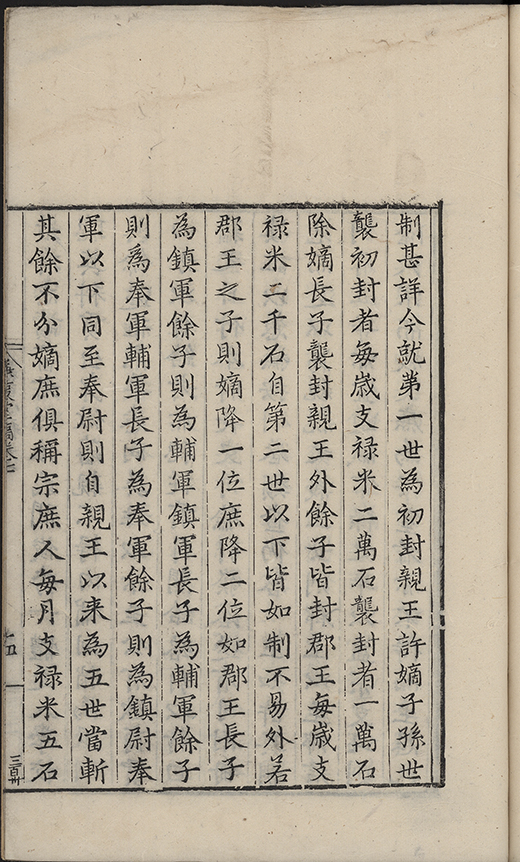 制甚詳今就第一世為初封親王許嫡子孫世
襲初封者每歲支祿米二萬石襲封者一萬石
除嫡長子襲封親王外餘子皆封郡王每歲支
祿米二千石自第二世以下皆如制不易外若
郡王之子則嫡降一位庶降二位如郡王長子
為鎮軍餘子則為輔軍鎮軍長子為輔軍餘子
則為奉軍輔軍長子為奉軍餘子則為鎮尉奉
軍以下同至奉尉則自親王以来為五世當斬
其餘不分嫡庶俱稱宗庶人每月支祿米五石